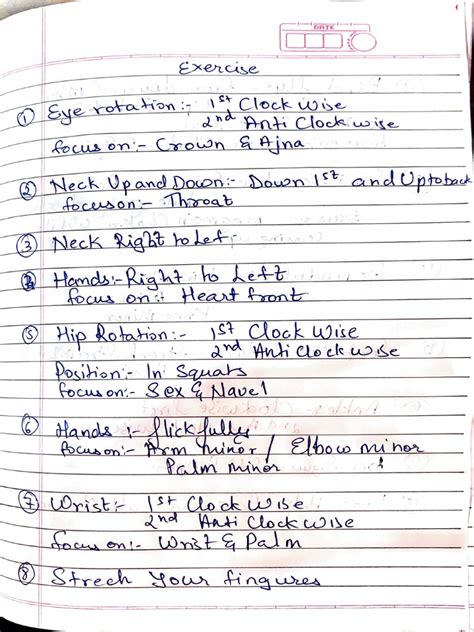 DATE
Exercise
① Eye rotation :- 1st Clock Wise
2nd Anti Clock wise
focus on:- Crown & Ajna
② Neck Up and Down:- Down 1st and Up to back
focus on:- Throat
③ Neck Right to Lef.
④ Hands:- Right to Left
focus on :- Heart front
⑤ Hip Rotation:- 1st Clock Wise
2nd Anti Clock wise
Position:- In Squats
focus on:- Sex & Navel
⑥ Hands :- flick fully
focus on:- Arm minor / Elbow minor
Palm minor
⑦ Wrist:- 1st Clock Wise
2nd Anti Clock Wise
focus on:- Wrist & Palm
⑧ Strech Your fingures